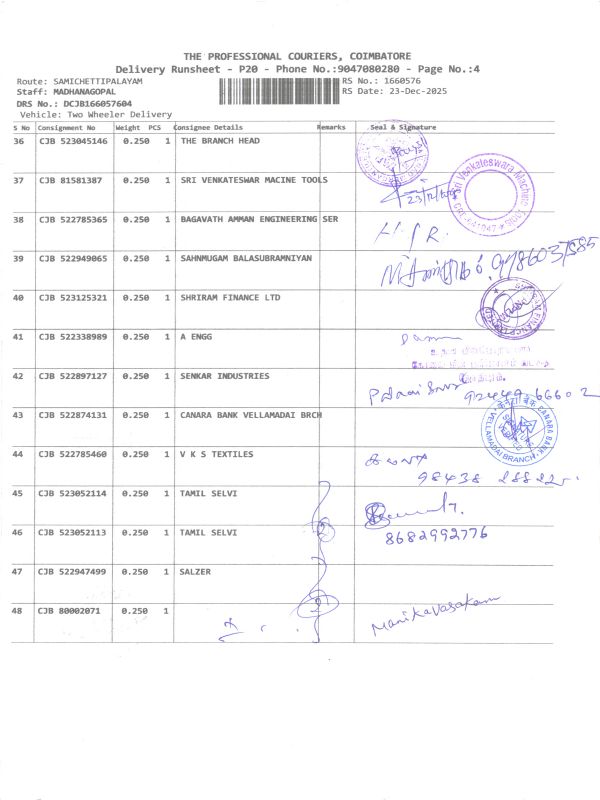 THE PROFESSIONAL COURIERS, COIMBATORE
Delivery Runsheet - P20 - Phone No.:9047080280 - Page No.:4
Route: SAMICHETTIPALAYAM RS No.: 1660576
Staff: MADHANAGOPAL RS Date: 23-Dec-2025
DRS No.: DCJB166057604
Vehicle: Two Wheeler Delivery
S No Consignment No Weight PCS Consignee Details Remarks Seal & Signature
36 CJB 523045146 0.250 1 THE BRANCH HEAD
37 CJB 81581387 0.250 1 SRI VENKATESWAR MACINE TOOLS
23/12/2025
Sri Venkateswara Machine Tools
38 CJB 522785365 0.250 1 BAGAVATH AMMAN ENGINEERING SER
39 CJB 522949065 0.250 1 SAHNMUGAM BALASUBRAMNIYAN
40 CJB 523125321 0.250 1 SHRIRAM FINANCE LTD
41 CJB 522338989 0.250 1 A ENGG
42 CJB 522897127 0.250 1 SENKAR INDUSTRIES
92449 66602
43 CJB 522874131 0.250 1 CANARA BANK VELLAMADAI BRCH
CANARA BANK
VELLAMADAI BRANCH
44 CJB 522785460 0.250 1 V K S TEXTILES
45 CJB 523052114 0.250 1 TAMIL SELVI
46 CJB 523052113 0.250 1 TAMIL SELVI
8682992776
47 CJB 522947499 0.250 1 SALZER
48 CJB 80002071 0.250 1
Manikavasakam